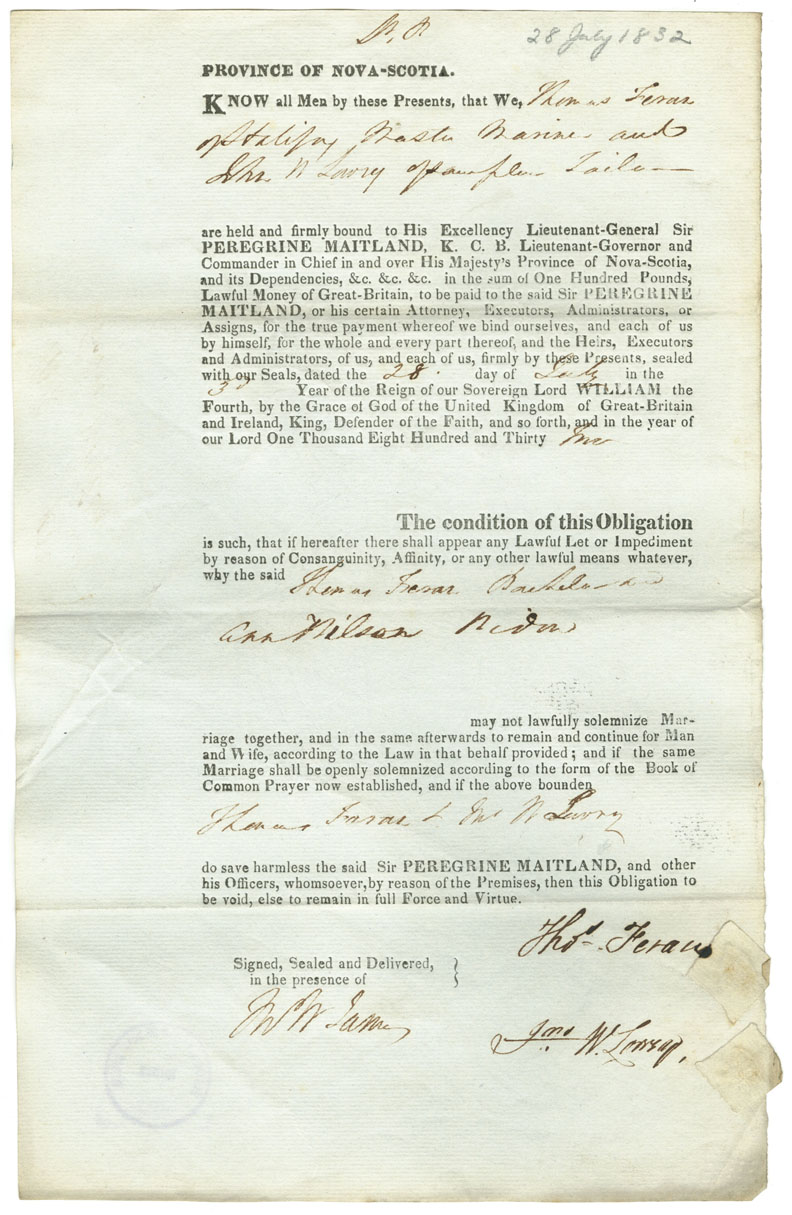 28 July 1832
PROVINCE OF NOVA-SCOTIA.
KNOW all Men by these Presents, that We, Thomas Feran
of Halifax Master Mariner and
John W Lowry of Tailor
are held and firmly bound to His Excellency Lieutenant-General Sir
PEREGRINE MAITLAND, K. C. B. Lieutenant-Governor and
Commander in Chief in and over His Majesty's Province of Nova-Scotia,
and its Dependencies, &c. &c. &c. in the sum of One Hundred Pounds,
Lawful Money of Great-Britain, to be paid to the said Sir PEREGRINE
MAITLAND, or his certain Attorney, Executors, Administrators, or
Assigns, for the true payment whereof we bind ourselves, and each of us
by himself, for the whole and every part thereof, and the Heirs, Executors
and Administrators, of us, and each of us, firmly by these Presents, sealed
with our Seals, dated the 28. day of July in the
3d Year of the Reign of our Sovereign Lord WILLIAM the
Fourth, by the Grace of God of the United Kingdom of Great-Britain
and Ireland, King, Defender of the Faith, and so forth, and in the year of
our Lord One Thousand Eight Hundred and Thirty two
The condition of this Obligation
is such, that if hereafter there shall appear any Lawful Let or Impediment
by reason of Consanguinity, Affinity, or any other lawful means whatever,
why the said Thomas Feran Bachelor and
Ann Wilson Widow
may not lawfully solemnize Mar-
riage together, and in the same afterwards to remain and continue for Man
and Wife, according to the Law in that behalf provided; and if the same
Marriage shall be openly solemnized according to the form of the Book of
Common Prayer now established, and if the above bounden
Thomas Feran & Jno W Lowry
do save harmless the said Sir PEREGRINE MAITLAND, and other
his Officers, whomsoever, by reason of the Premises, then this Obligation to
be void, else to remain in full Force and Virtue.
Thos. Feran
Signed, Sealed and Delivered,
in the presence of
W James
Jno W. Lowry.